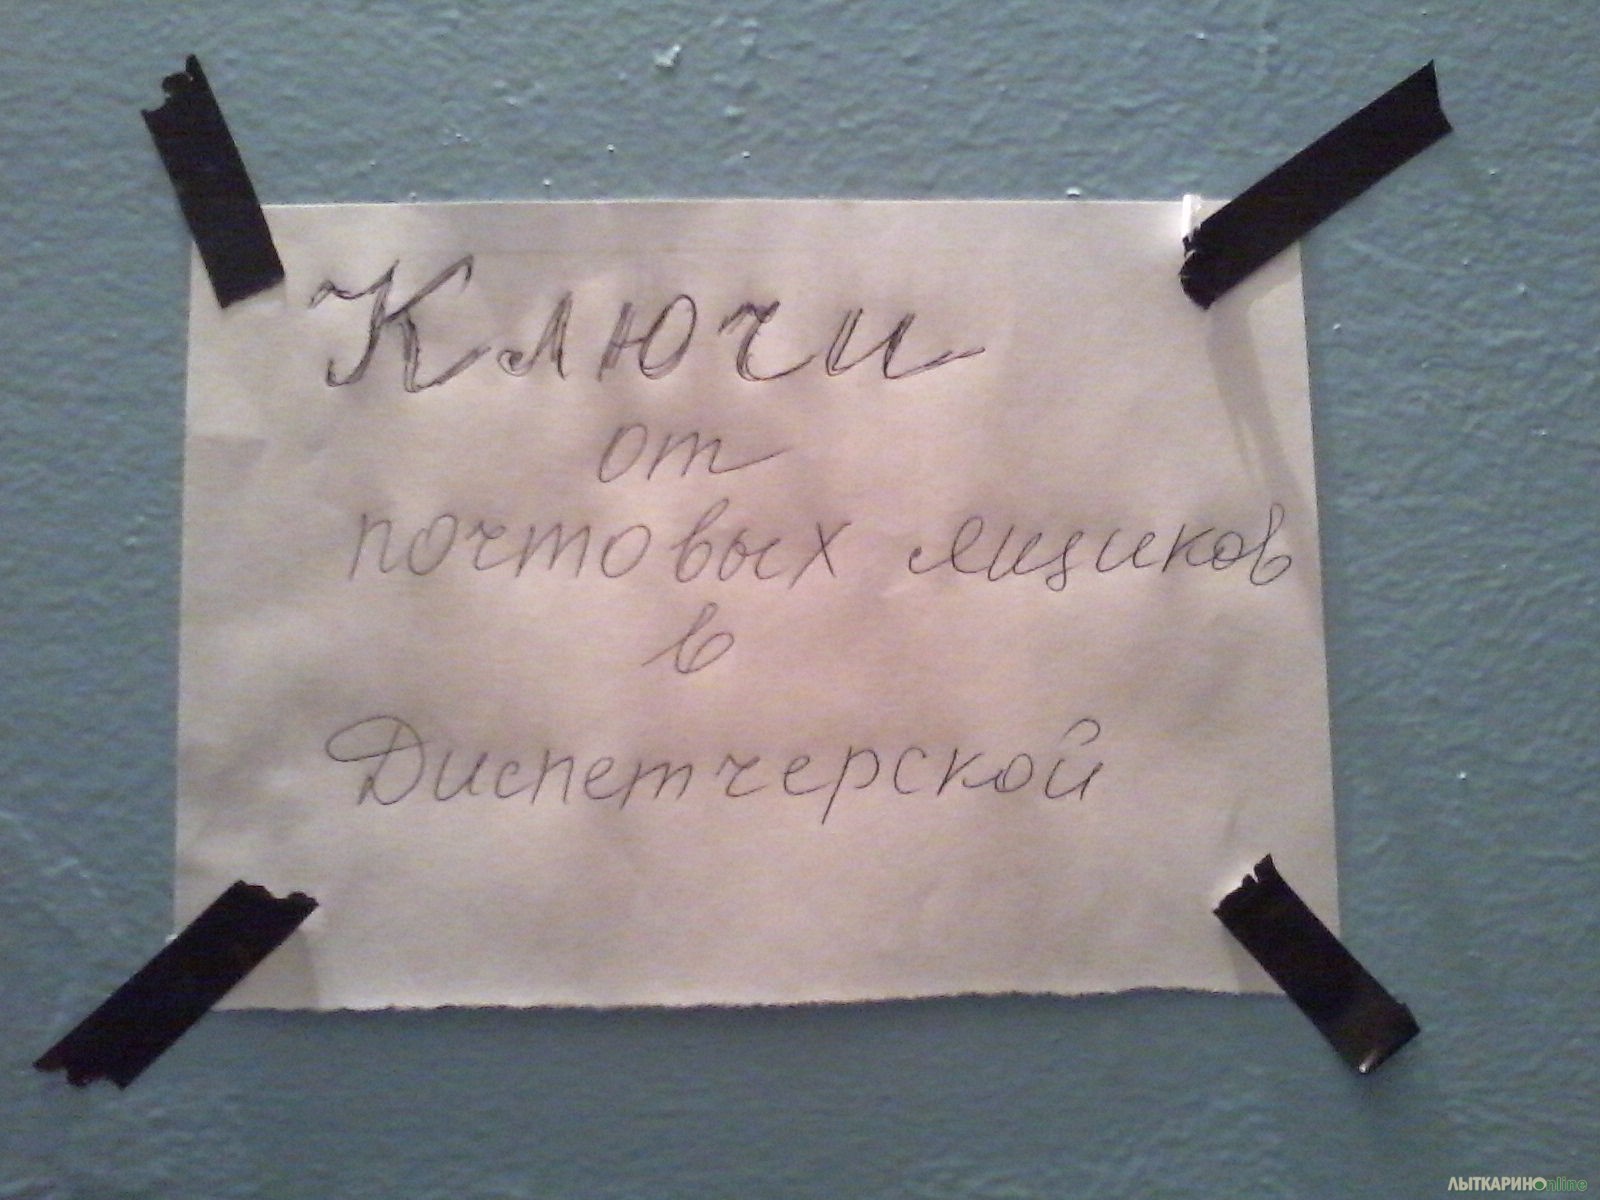 Ключи
от
почтовых ящиков
в
Диспетчерской
ЛЫТКАРИНОnline